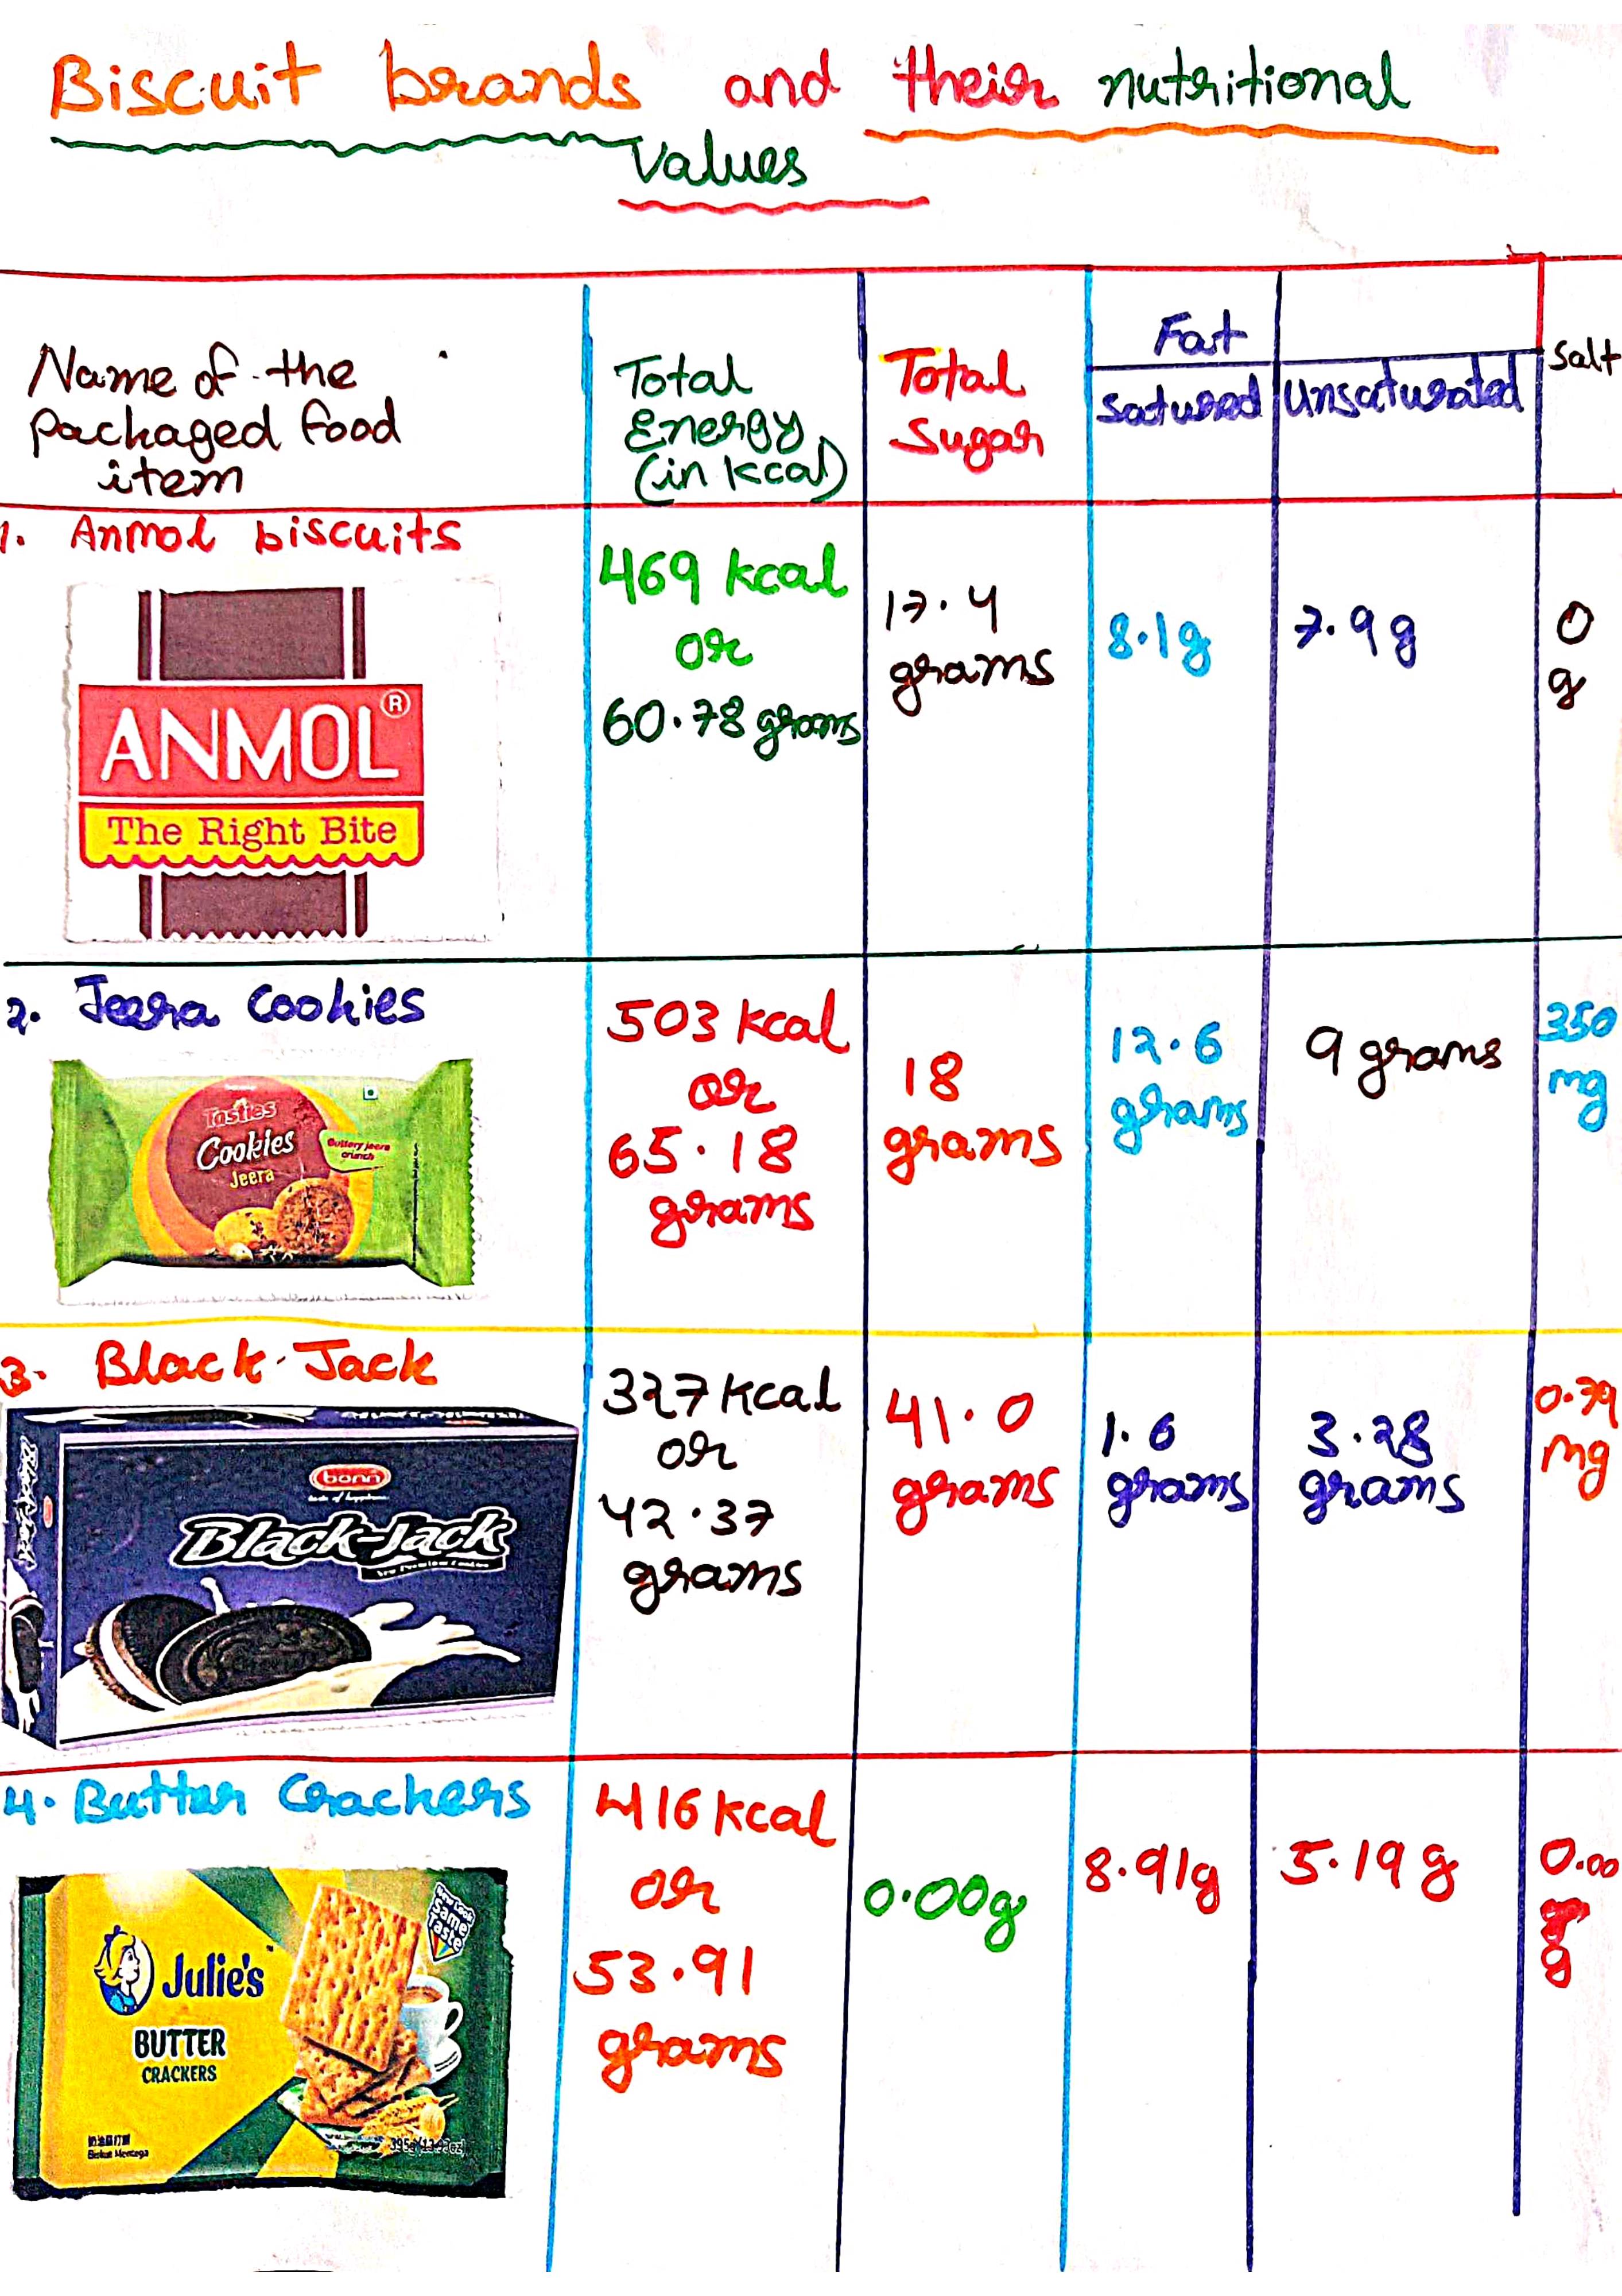 Biscuit brands and their nutritional
Values
Name of the
packaged food
item
Total
Energy
(in kcal)
Total
Sugar
Fat
Satured
Unsaturated
Salt
1. Anmol biscuits
ANMOL®
The Right Bite
469 kcal
or
60.78 grams
17.4
grams
8.1g
7.9g
0
g
2. Jeera Cookies
Tasties
Cookies
Jeera
Buttery jeera
crunch
503 kcal
or
65.18
grams
18
grams
12.6
grams
9 grams
350
mg
3. Black-Jack
bonn
Black-Jack
327 kcal
or
42.37
grams
41.0
grams
1.6
grams
3.28
grams
0.79
mg
4. Butter Crackers
New Look
Same
Taste
Julie's™
BUTTER
CRACKERS
Biskut Mentega
395g
416 kcal
or
53.91
grams
0.00g
8.91g
5.19g
0.00
g